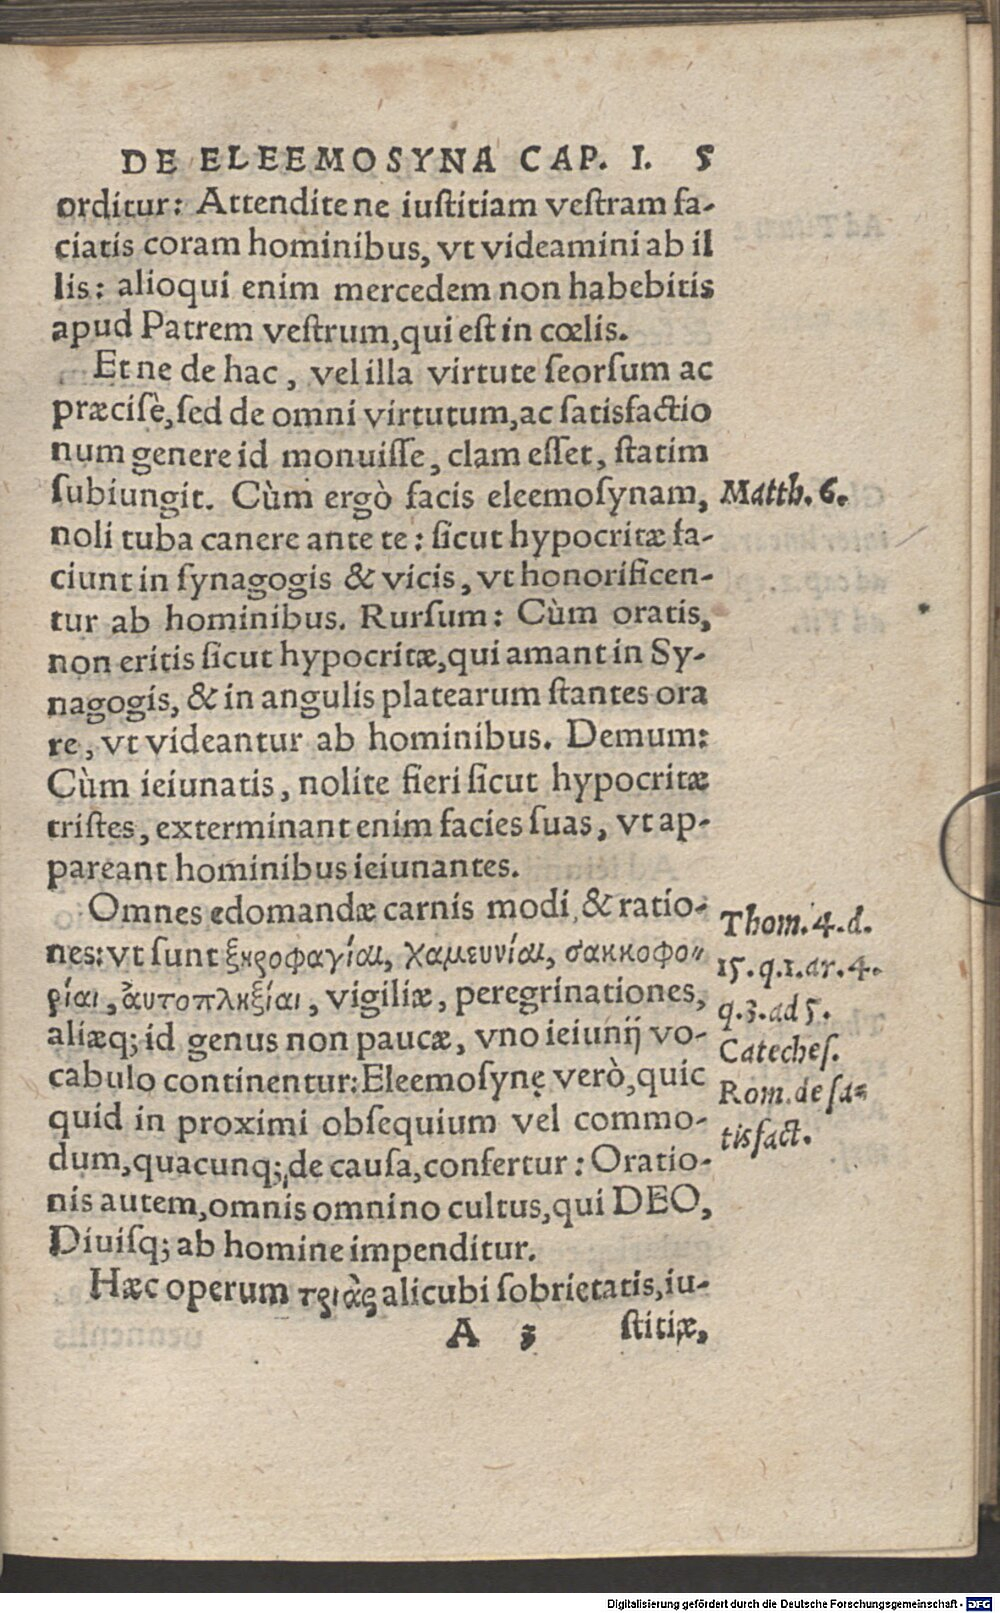 DE ELEEMOSYNA CAP. I. 5
orditur: Attendite ne iustitiam vestram fa-
ciatis coram hominibus, vt videamini ab il
lis: alioqui enim mercedem non habebitis
apud Patrem vestrum, qui est in cœlis.
Et ne de hac, vel illa virtute seorsum ac
præcisè, sed de omni virtutum, ac satisfactio
num genere id monuisse, clam esset, statim
subiungit. Cùm ergò facis eleemosynam,
Matth. 6.
noli tuba canere ante te: sicut hypocritæ fa-
ciunt in synagogis & vicis, vt honorificen-
tur ab hominibus. Rursum: Cùm oratis,
non eritis sicut hypocritæ, qui amant in Sy-
nagogis, & in angulis platearum stantes ora
re, vt videantur ab hominibus. Demum:
Cùm ieiunatis, nolite fieri sicut hypocritæ
tristes, exterminant enim facies suas, vt ap-
pareant hominibus ieiunantes.
Omnes edomandæ carnis modi, & ratio-
nes: vt sunt ξηροφαγίαι, χαμευνίαι, σακκοφο-
ρίαι, ἀυτοπληξίαι, vigiliæ, peregrinationes,
aliæq; id genus non paucæ, vno ieiunij vo-
cabulo continentur: Eleemosynę verò, quic
quid in proximi obsequium vel commo-
dum, quacunq; de causa, confertur: Oratio-
nis autem, omnis omnino cultus, qui DEO,
Diuisq; ab homine impenditur.
Thom. 4. d.
15. q. 1. ar. 4.
q. 3. ad 5.
Cateches.
Rom. de sa-
tisfact.
Hæc operum τριὰς alicubi sobrietatis, iu-
A 3 stitiæ,
Digitalisierung gefördert durch die Deutsche Forschungsgemeinschaft - DFG